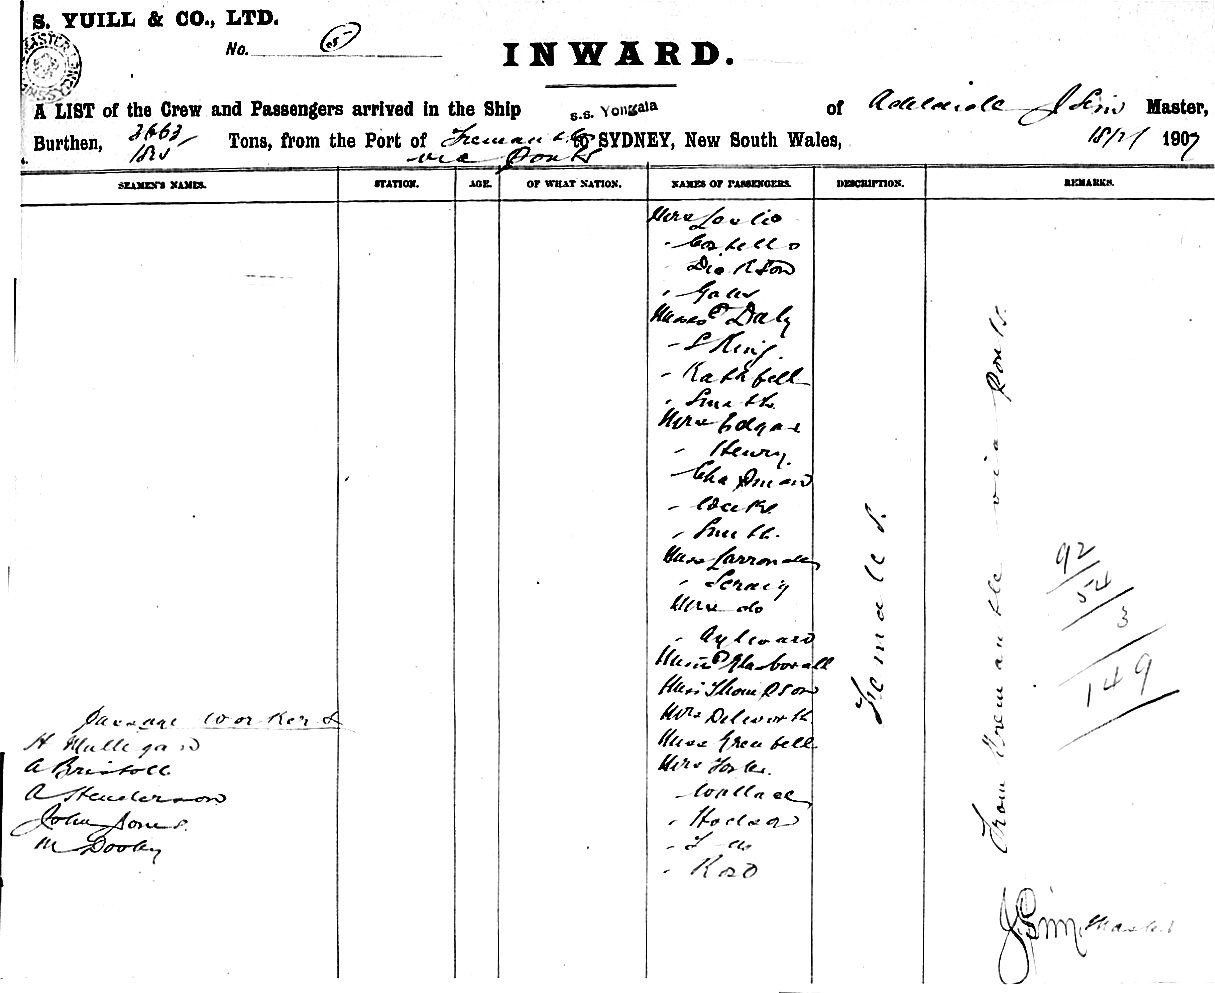 S. YUILL & CO., LTD.
No. 5
INWARD.
A LIST of the Crew and Passengers arrived in the Ship s.s. Yongala of Adelaide J Sim Master,
Burthen, Tons, from the Port of Fremantle to SYDNEY, New South Wales, 1907
via Ports
SEAMEN'S NAMES. STATION. AGE. OF WHAT NATION. NAMES OF PASSENGERS. DESCRIPTION. REMARKS.
Mrs Leslie
" Costello
Dickson
" Gales
Misses Daly
" King
" Rathfell
" Smith
Mrs Edgar
" Henry
Chapman
"
" Smith
Miss
"
Mrs do
" Aylward
Miss Thompson
Mrs Dilworth
Miss Grenfell
Mrs
Wallace
" Hodson
"
"
Passage Workers
H Mulligan
A Bristoll
A Henderson
John Jones
M Dooley
Females
From Fremantle via Ports.
92
54
3
149
J Sim Master